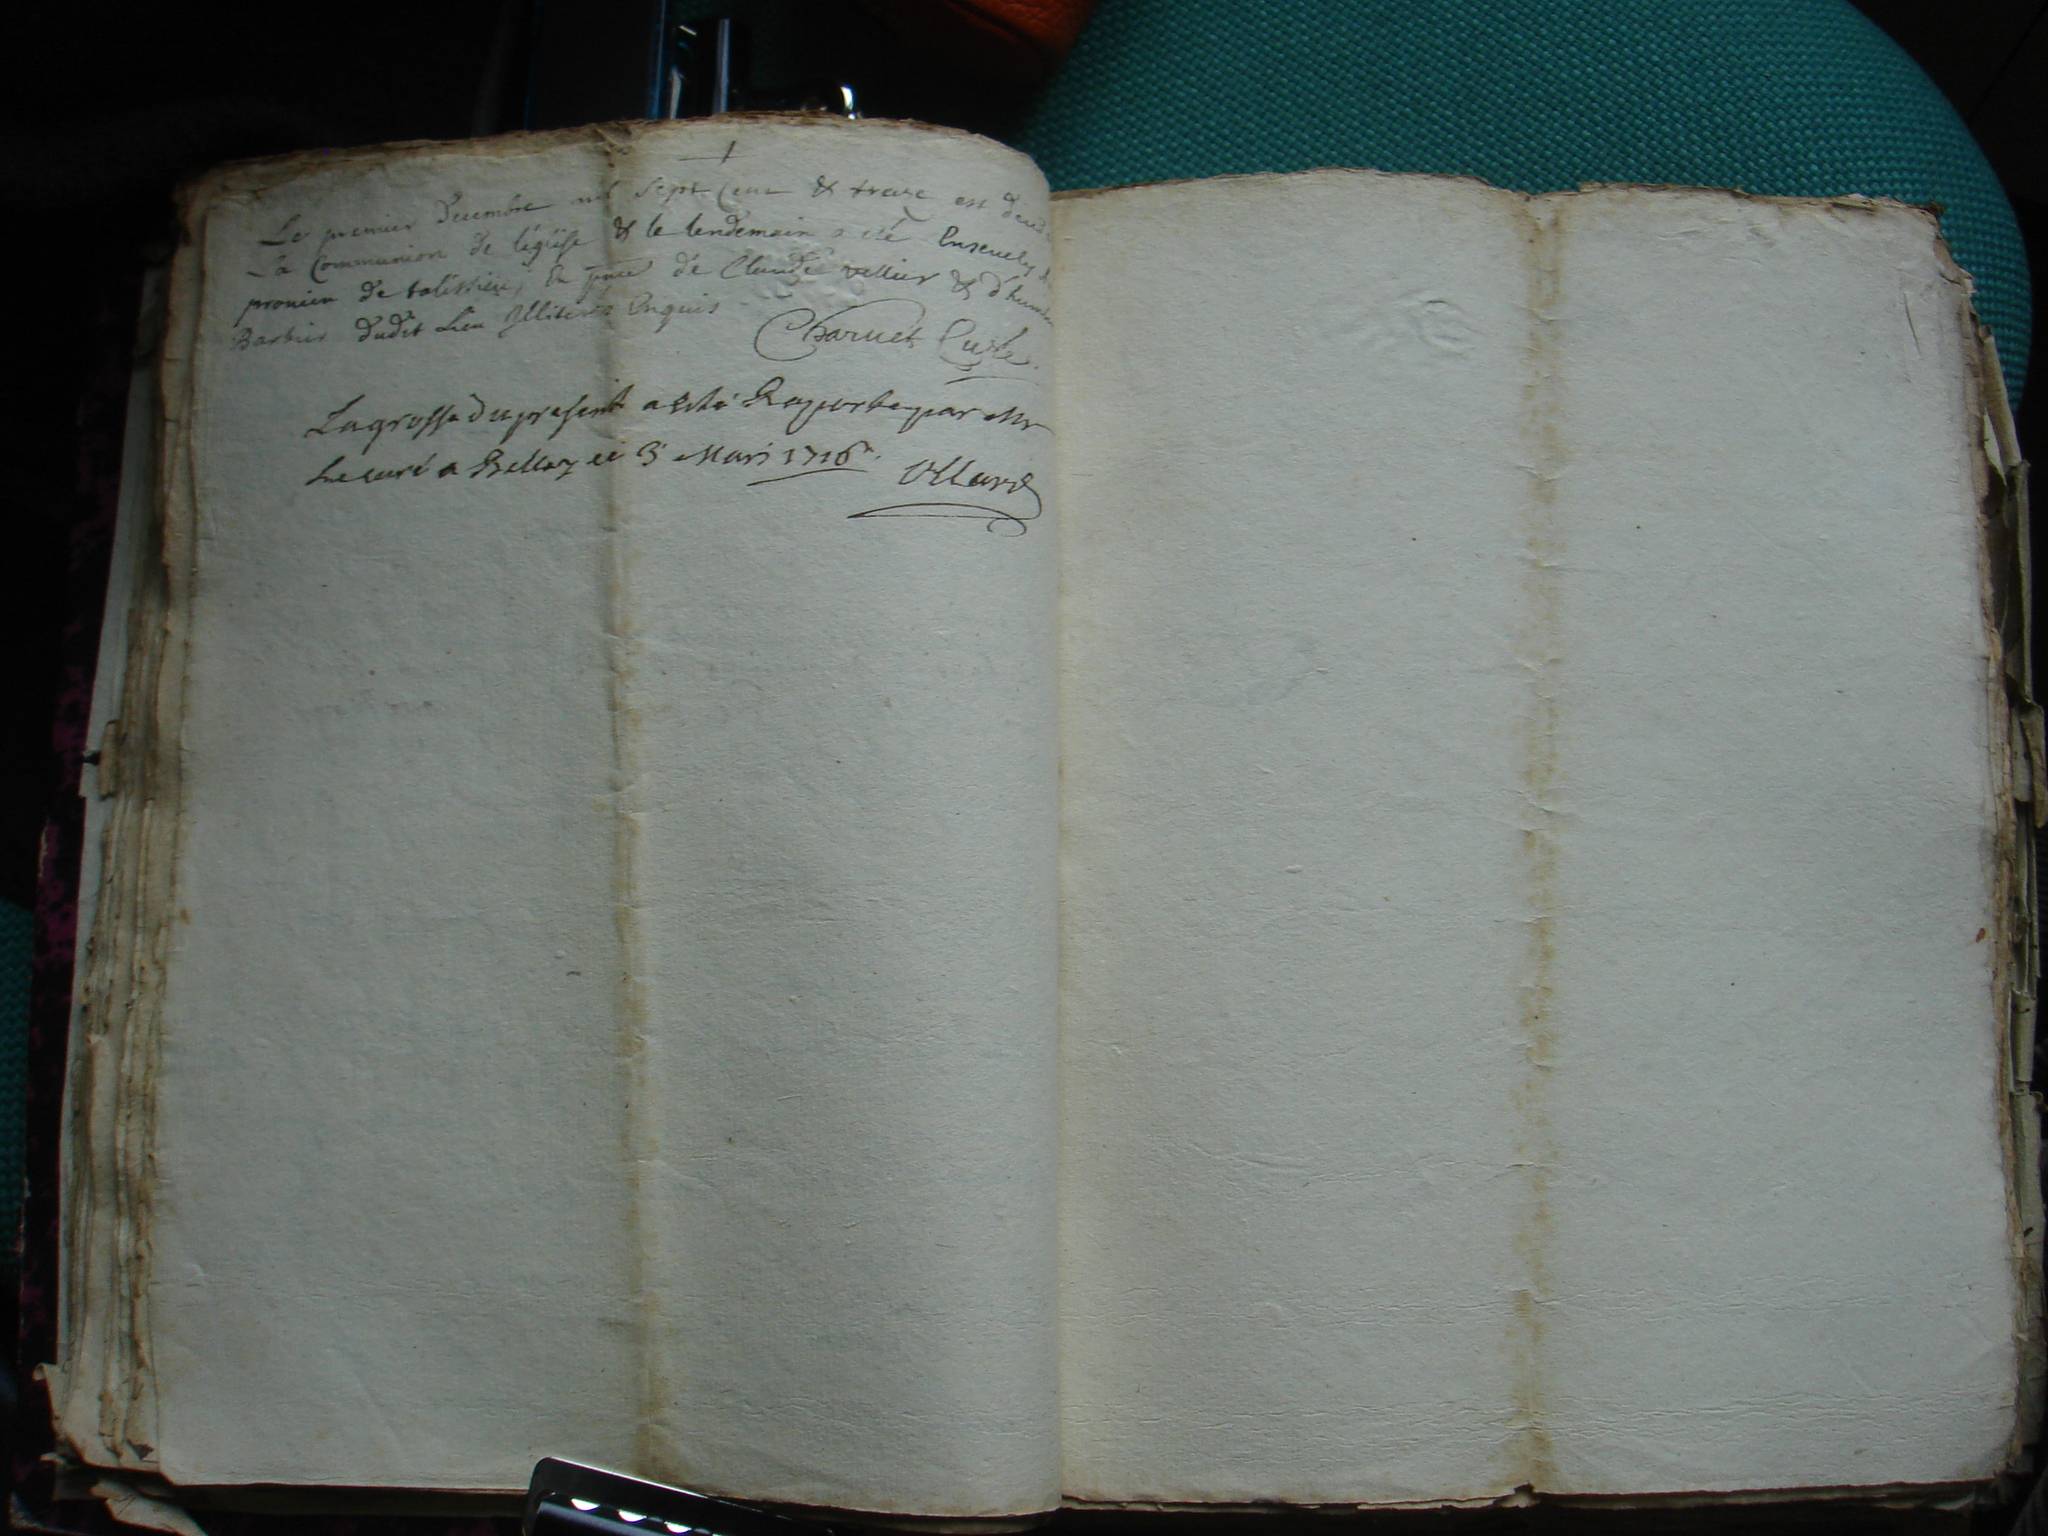 Le premier decembre mil sept cent & treze est deced
La Communion de l'église & le lendemain a été Ensevely d
promien de talissieu, En pnce de Claude vellier & d'humber
Barbier dudit Lieu Illiteres Enquis
Charvet Curé.
La grosse du present a esté Raportee par Mr
Le curé a Belley ce 3e Mars 1716